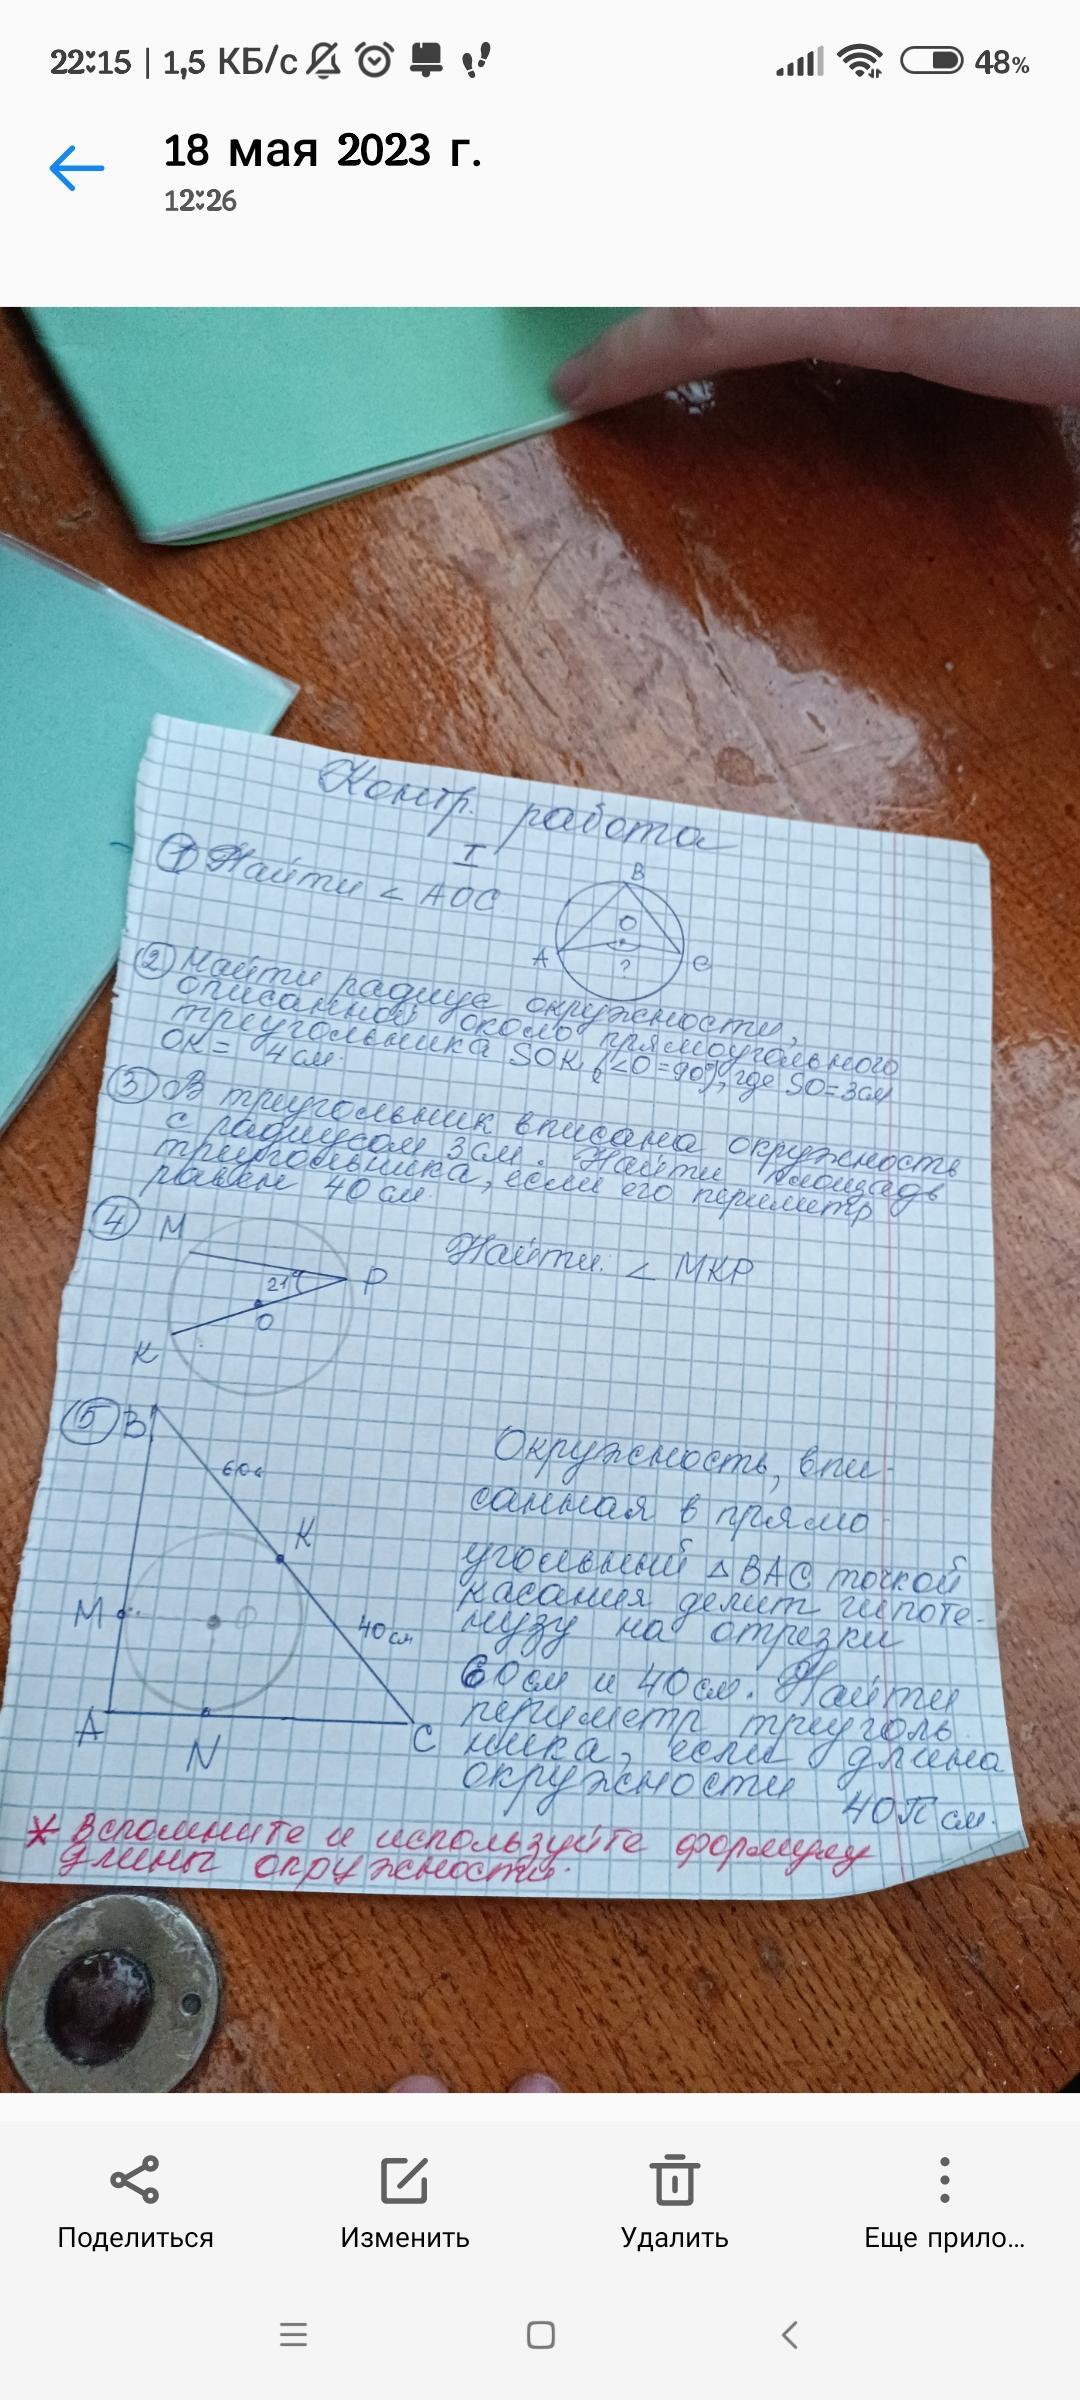 22:15 | 1,5 КБ/с
48%
18 мая 2023 г.
12:26
Контр. работа
I
① Найти ∠ АОС
В
О
А
С
?
② Найти радиус окружности,
описанной около прямоугольного
треугольника SOK (∠O=90°), где SO=3см
OK= 4см.
③ В треугольник вписана окружность
с радиусом 3см. Найти площадь
треугольника, если его периметр
равен 40 см.
④ М
21°
Р
О
К
Найти: ∠ МКР
⑤ В
60см
К
М
О
40см
А
N
С
Окружность, впи-
санная в прямо-
угольный △ВАС точкой
касания делит гипоте-
нузу на отрезки
60см и 40см. Найти
периметр треуголь
ника, если длина
окружности 40π см.
* Вспомните и используйте формулу
длины окружности.
Поделиться
Изменить
Удалить
Еще прило...